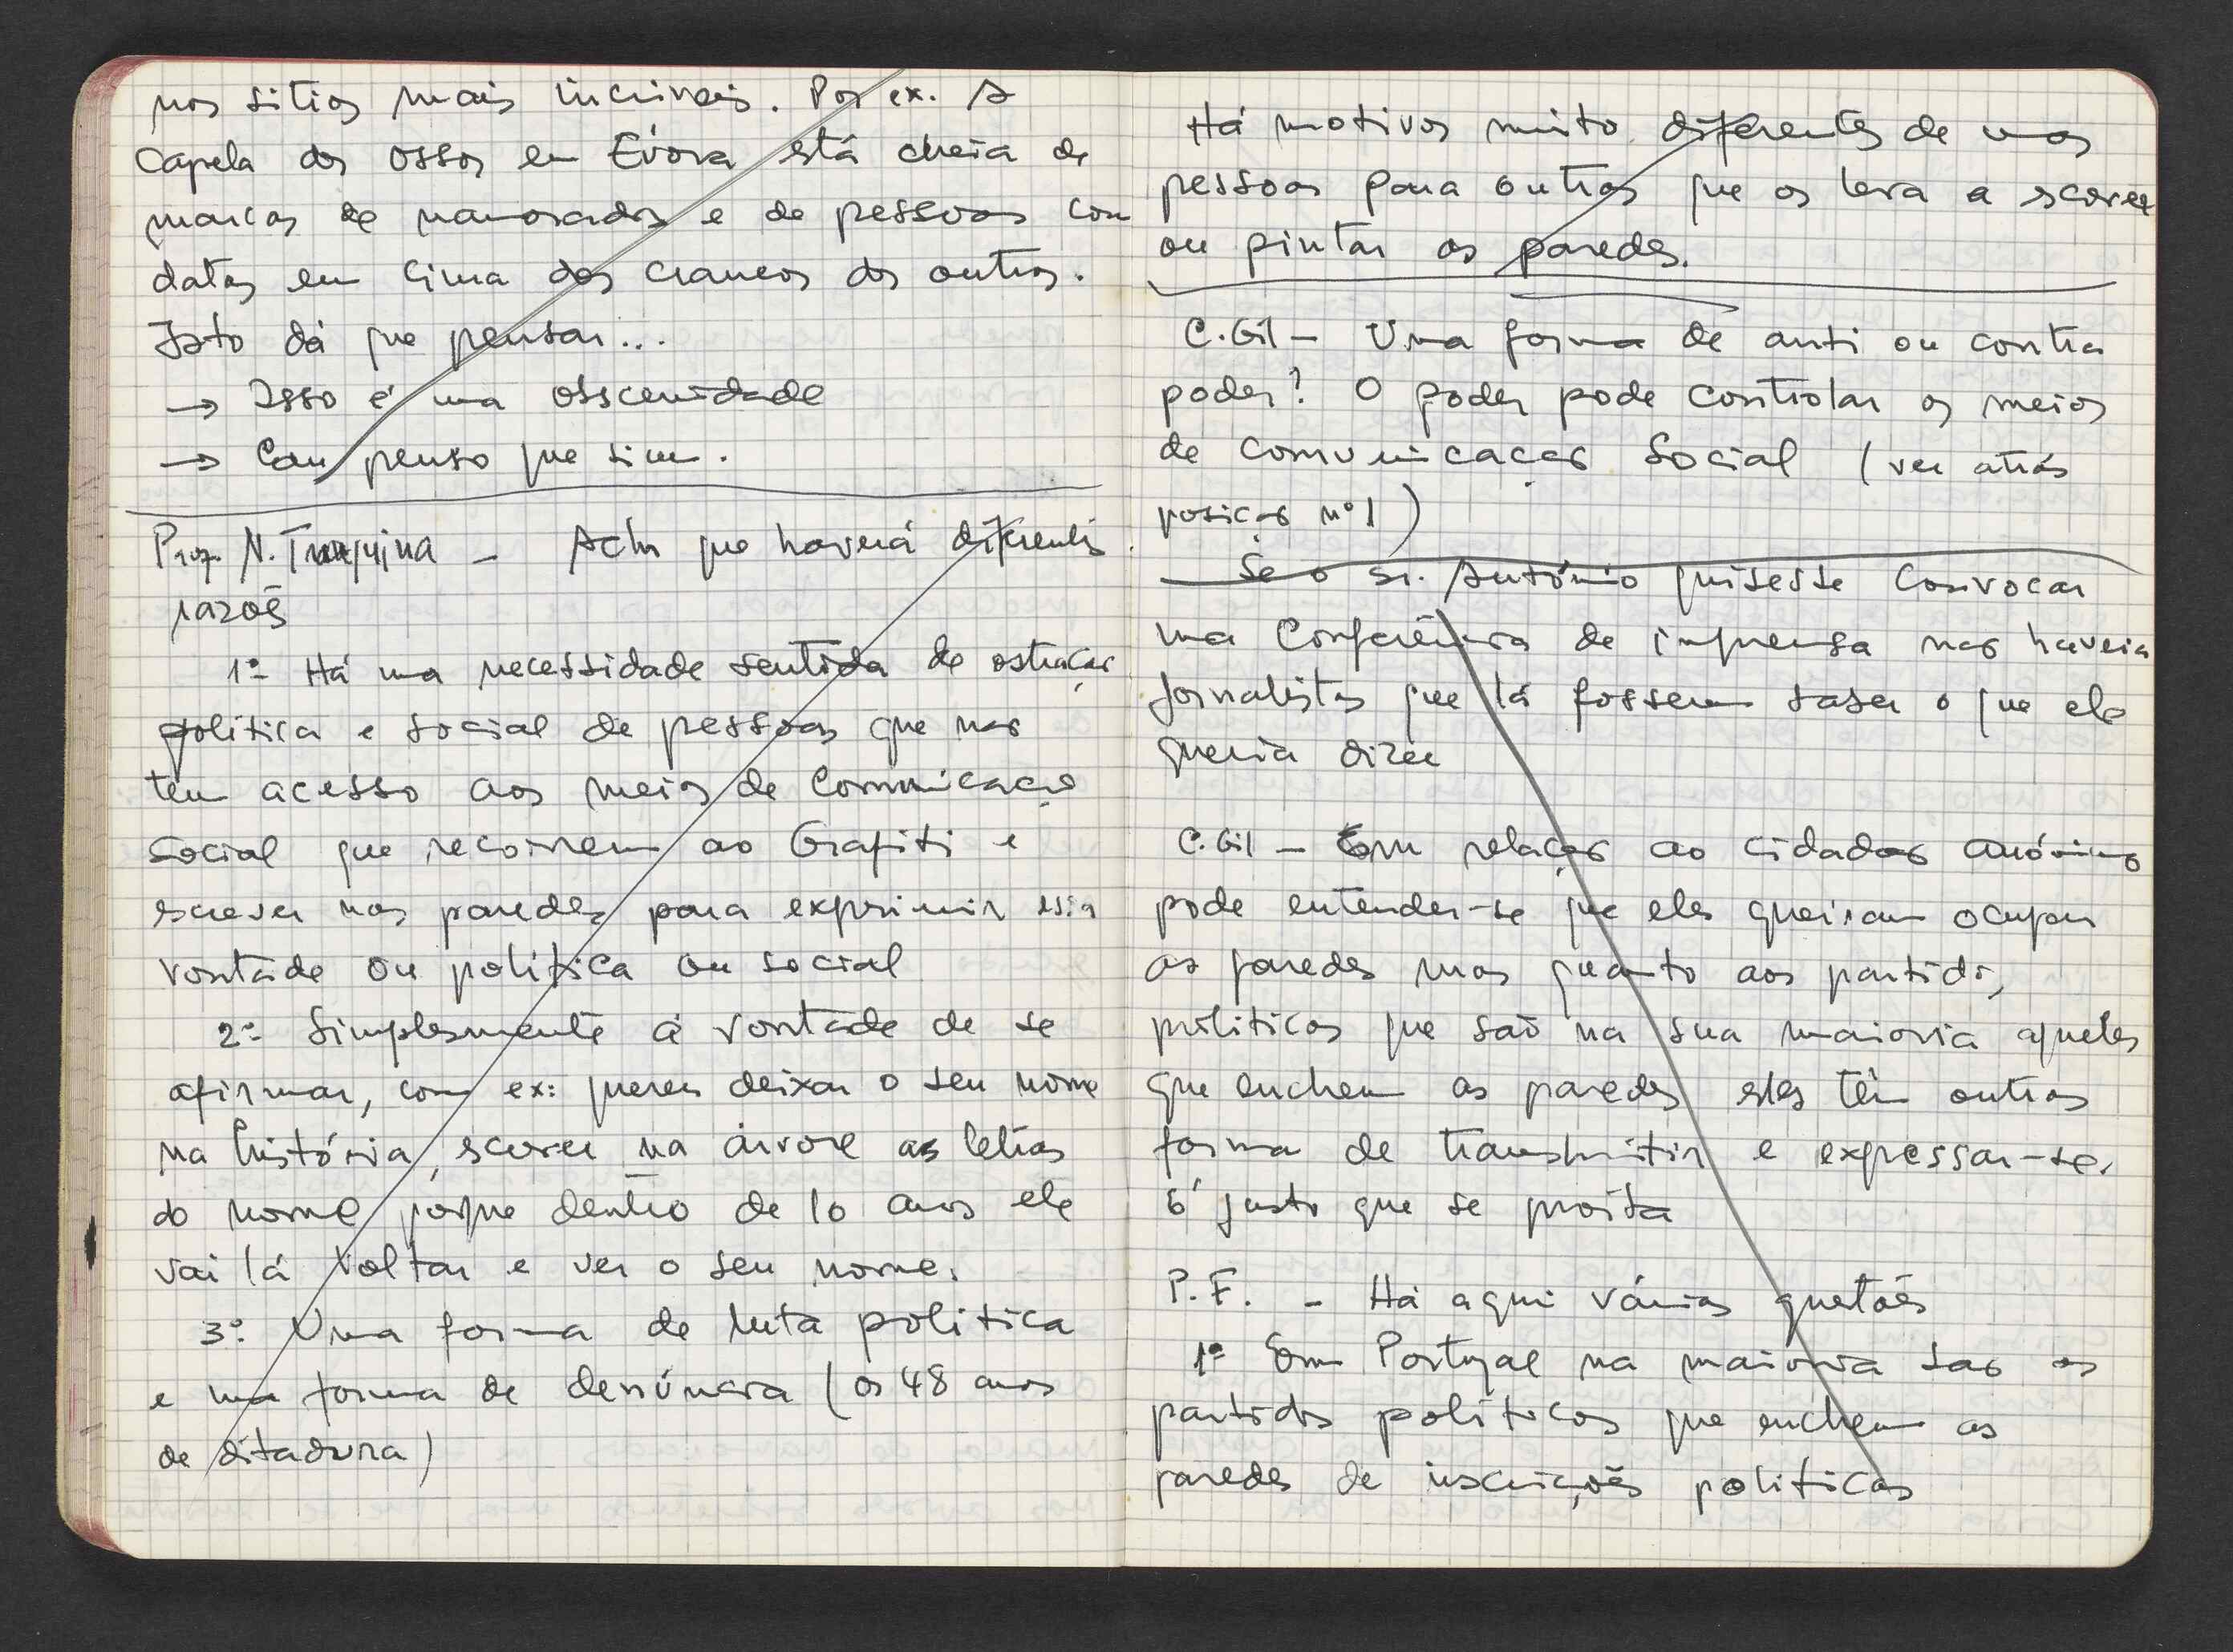 nos sitios mais incriveis. Por ex. A
Capela dos Ossos em Évora está cheia de
marcas de namorados e de pessoas com
datas em cima dos craneos dos outros.
Isto dá que pensar...
→ Isso é uma obscenidade
→ penso que sim.
Prof. N. Traquina - Acho que haverá diferentes
razoẽs
1º Há uma necessidade sentida de
politica e social de pessoas que nao
tem acesso aos meios de Comunicaçao
Social que recorrem ao Grafiti e
escrever nas paredes para exprimir essa
vontade ou politica ou social
2º Simplesmente a vontade de se
afirmar, como ex: querer deixar o seu nome
na história, escrever na árvore as letras
do nome porque dentro de 10 anos ele
vai lá voltar e ver o seu nome.
3º Uma forma de luta politica
e uma forma de denúncia (os 48 anos
de ditadura)
Há motivos muito diferentes de umas
pessoas para outras que os leva a escrever
ou pintar as paredes.
C.Gil - Uma forma de anti ou contra
poder? O poder pode controlar os meios
de comunicaçao Social (ver atrás
posiçao nº1)
Se o sr. António quisesse convocar
uma Conferência de imprensa nao haveria
jornalistas que lá fossem saber o que ele
queria dizer
C.Gil - Em relaçao ao cidadao anónimo
pode entender-se que eles queiram ocupar
as paredes mas quanto aos partidos
politicos que saõ na sua maioria aqueles
que enchem as paredes eles têm outras
forma de transmitir e expressar-se.
É justo que se proiba
P.F. - Há aqui várias questoẽs
1º Em Portugal na maioria sao os
partidos politicos que enchem as
paredes de inscriçoẽs politicas